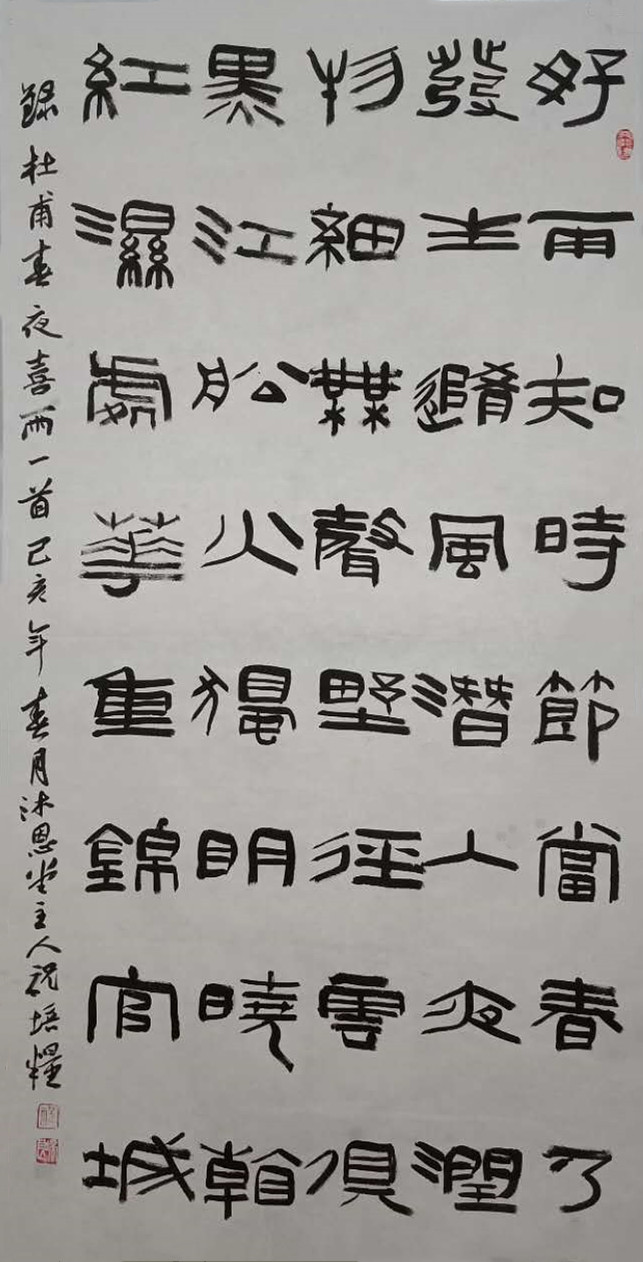 好雨知時節當春乃
發生隨風潛入夜潤
物細無聲野徑雲俱
黑江舩火獨明曉看
紅濕處華重錦官城
錄杜甫春夜喜雨一首己亥年春月沐恩堂主人祝培糧